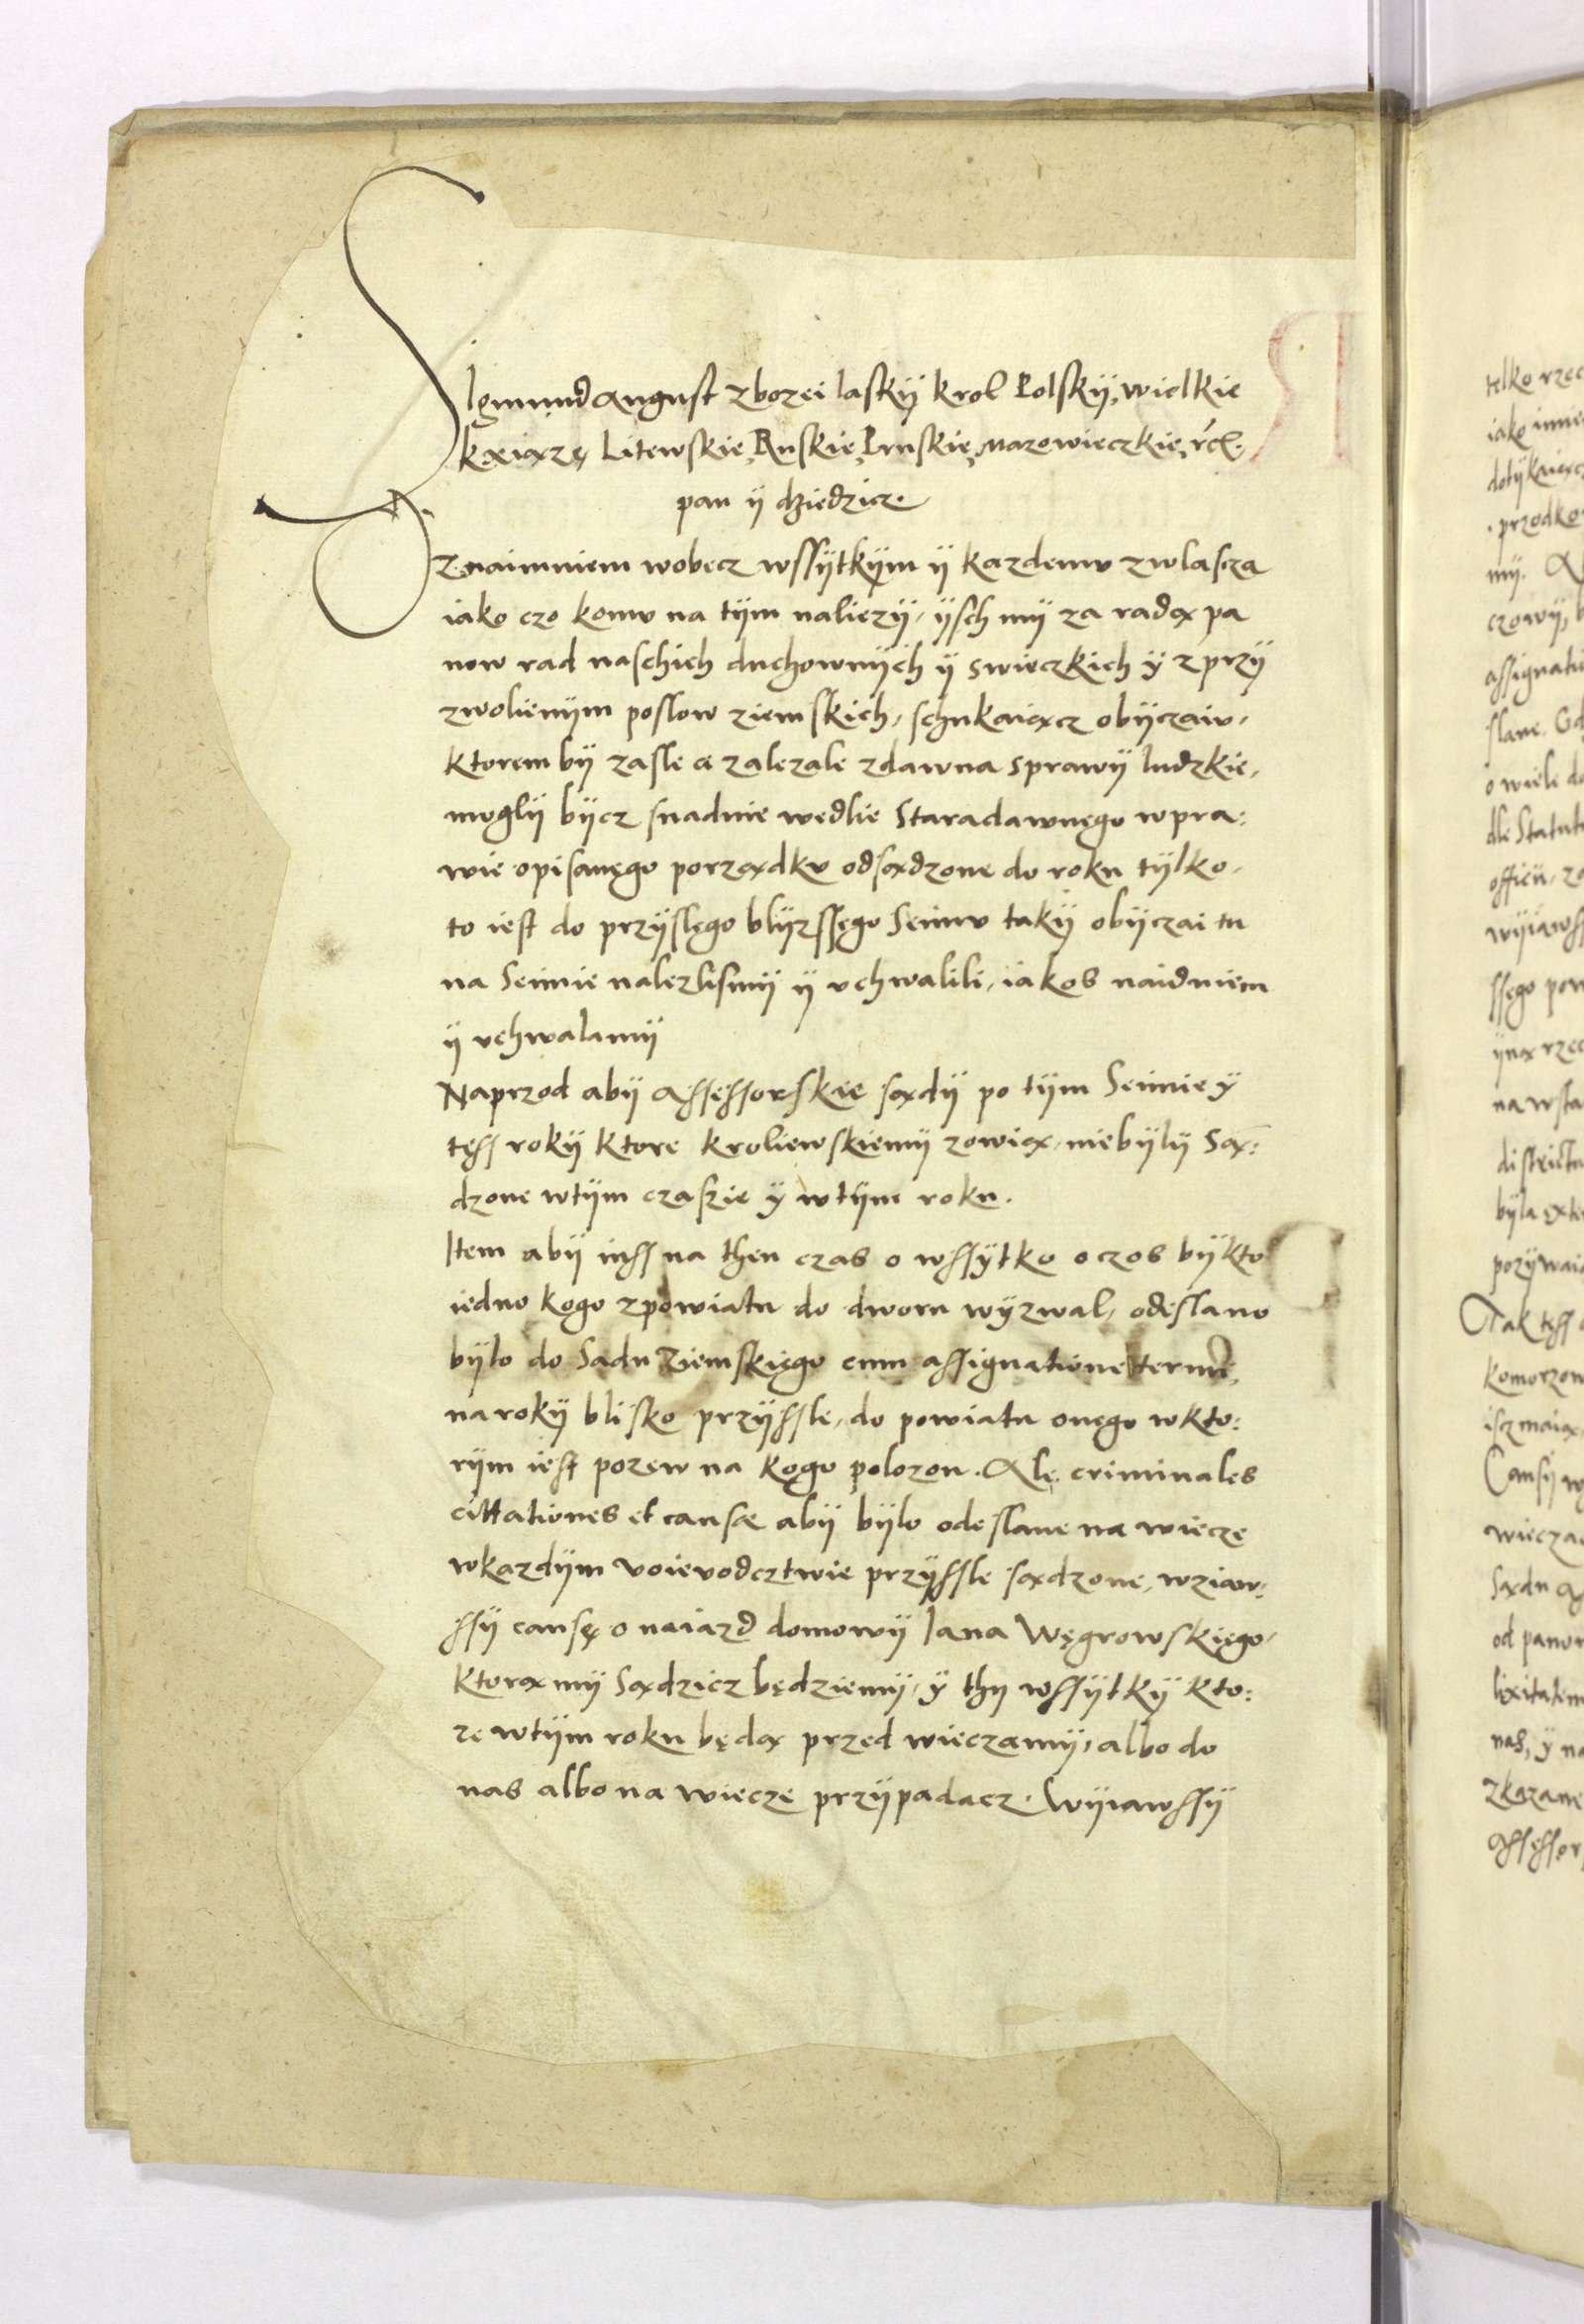 Sigmund August z bozei laskÿ krol Polskÿ, wielkie
kxiąxzę Litewskie, Ruskie, Pruskie, Mazowieczkie, rcł.
pan ÿ dziedzicz.
Oznaimuiem wobecz wssÿtkÿm ÿ kazdemv zwlascza
iako czo komv na tÿm naliezÿ, ÿsch mÿ za radą pa
now rad naschich duchownÿch ÿ swieczkich ÿ z przÿ
zwolienÿm poslow ziemskich, schukaiącz obÿczaiv,
ktorem bÿ zasle a zalezale zdawna sprawÿ ludzkie,
moglÿ bÿcz snadnie wedlie Staradawnęgo wpra:
wie opisanęgo porządkv odsądzone do roku tÿlko,
to iest do przÿslęgo blÿzssęgo Seimv takÿ obÿczai tu
na Seimie nalezlismÿ ÿ vchwalili, iakos naiduiem
ÿ vchwalamÿ
Naprzod abÿ Assessorskie sądÿ po tÿm Seimie ÿ
tęss rokÿ ktore kroliewskiemÿ zowią, niebÿlÿ Są:
dzone wtÿm czaszie ÿ wtÿm roku.
Item abÿ iuss na then czas o wssÿtko o czos bÿkto
iedno kogo zpowiatu do dworu wÿzwal, odeslano
bÿlo do Sadu Ziemskięgo cum assignatione
na rokÿ blisko przÿssle, do powiatu onęgo wkto:
rÿm iest pozew na kogo polozon. Alę criminales
cittationes et causæ abÿ bÿlo odeslane na wiecze
wkazdÿm voievodcztwie przÿssle sądzone, wziaw:
ssÿ causę o naiazd domowÿ Iana Węgrowskięgo,
ktorą mÿ Sądzicz będziemÿ, ÿ thÿ wssÿtkÿ kto:
re wtÿm roku będą przed wieczamÿ, albo do
nas albo na wiecze przÿpadacz. Wÿiawssÿ